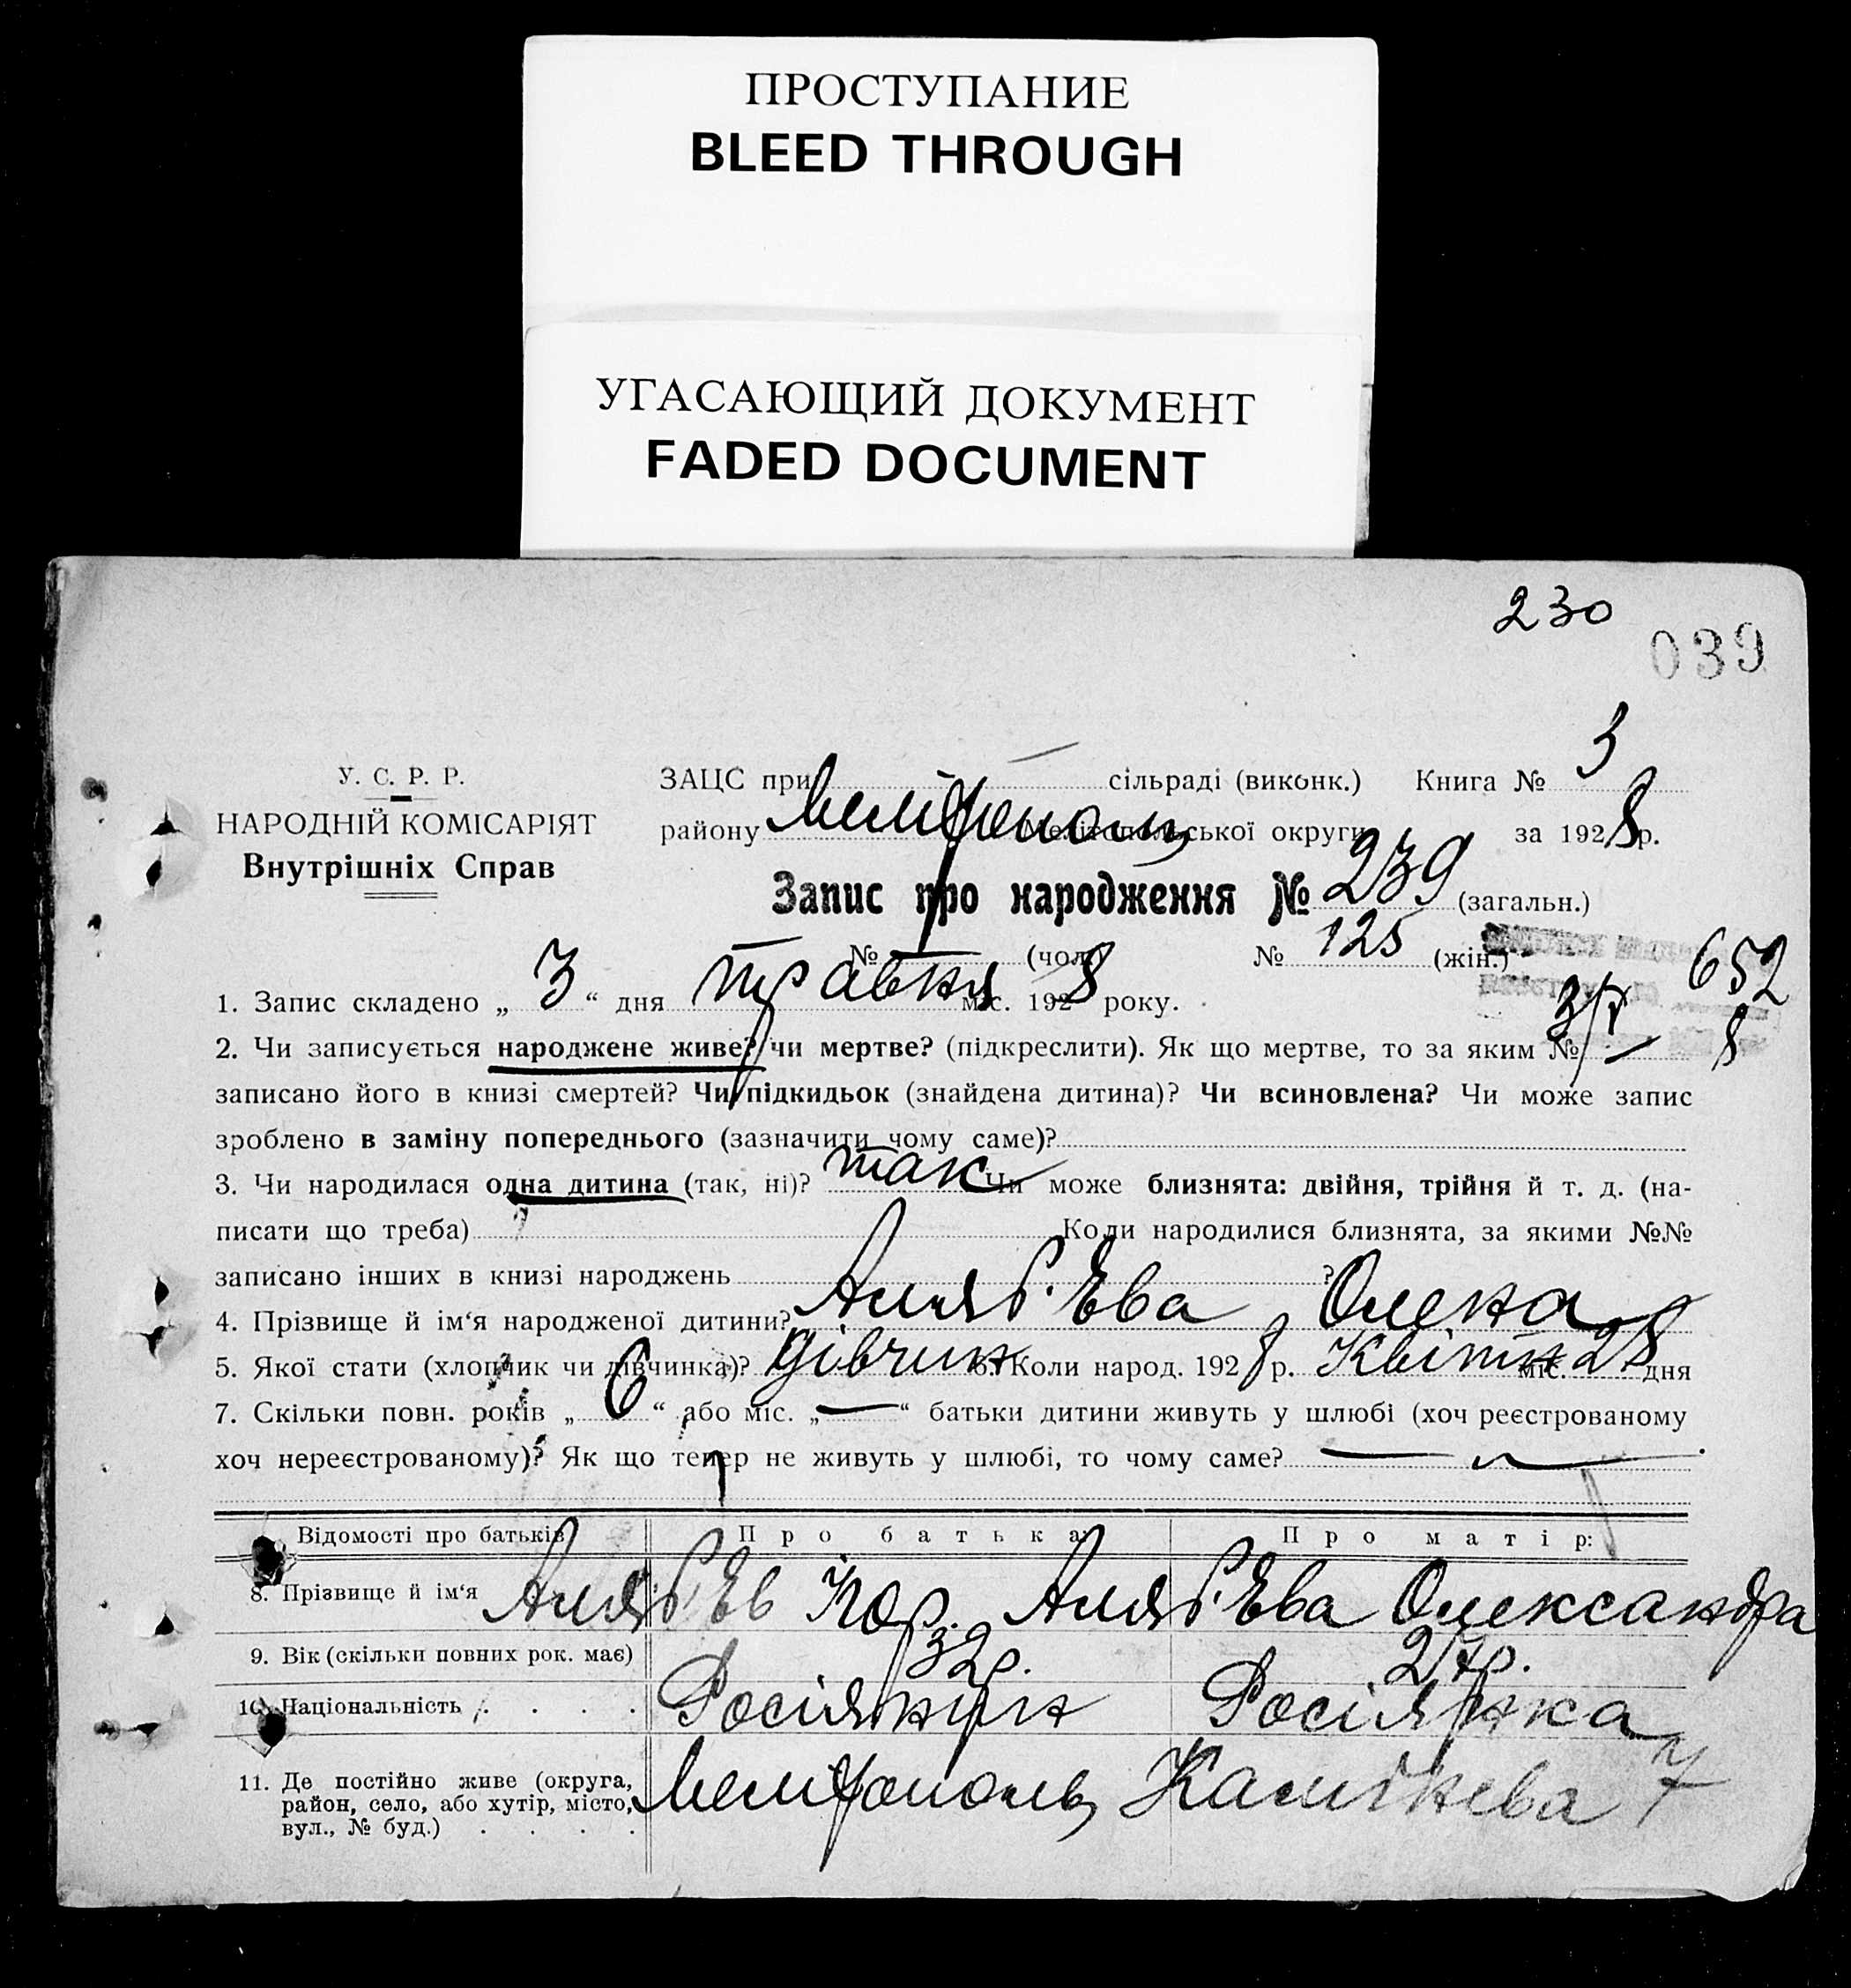 ПРОСТУПАНИЕ
BLEED THROUGH
УГАСАЮЩИЙ ДОКУМЕНТ
FADED DOCUMENT
230
039
У. С. Р. Р.
НАРОДНІЙ КОМІСАРІЯТ
Внутрішніх Справ
ЗАЦС при сільраді (виконк.) Книга № 3
району Мелітополь Мелітопольської округи за 1928 р.
Запис про народження № 239 (загальн.)
№ (чол.) № 125 (жін.)
652
1. Запис складено „ 3 “ дня травня міс. 1928 року.
3/V 8
2. Чи записується народжене живе? чи мертве? (підкреслити). Як що мертве, то за яким №
записано його в книзі смертей? Чи підкидьок (знайдена дитина)? Чи всиновлена? Чи може запис
зроблено в заміну попереднього (зазначити чому саме)?
3. Чи народилася одна дитина (так, ні)? так Чи може близнята: двійня, трійня й т. д. (на-
писати що треба) Коли народилися близнята, за якими №№
записано інших в книзі народжень ?
4. Прізвище й ім‘я народженої дитини? Аляб'Ева Олена
5. Якої стати (хлопчик чи дівчинка)? дівчин 6. Коли народ. 1928 р. Квітн міс. 28 дня
7. Скільки повн. років „ 6 “ або міс. „ — “ батьки дитини живуть у шлюбі (хоч реєстрованому
хоч нереєстрованому)? Як що тепер не живуть у шлюбі, то чому саме?
Відомості про батьків Про батька Про матір:
8. Прізвище й ім‘я Аляб'Ев Аляб'Ева Олександра
9. Вік (скільки повних рок. має) 32р.
10. Національність Росіянин Росіянка
11. Де постійно живе (округа,
район, село, або хутір, місто,
вул., № буд.)
Мелітополь 7